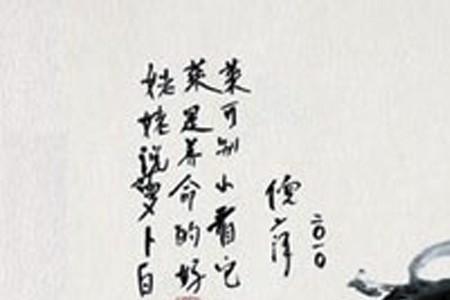 姥姥说萝卜白
菜是养命的好
菜可别小看它
二〇一〇